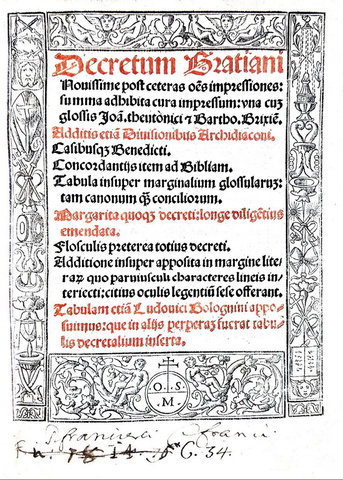 Decretum Gratiani
Nouissime post ceteras oẽs impressiones:
summa adhibita cura impressum: vna cuȝ
glossis Joã. theutonici ⁊ Bartho. Brixiẽ.
Additis etiã Diuisionibus Archidiaconi.
Casibusqȝ Benedicti.
Concordantijs item ad Bibliam.
Tabula insuper marginalium glossularuȝ:
tam canonum qȝ̃ conciliorum.
Margarita quoqȝ decreti: longe diligẽtius
emendata.
Flosculis preterea totius decreti.
Additione insuper apposita in margine lite-
raꝝ quo paruiusculi characteres lineis in-
teriecti: citius oculis legentiũ sese offerant.
Tabulam etiã Ludouici Bolognini appo-
suimus: que in alijs perperaȝ fuerat tabu-
lis decretalium inserta.
O. S.
.M.
C. 34.